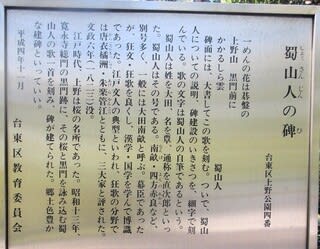 蜀山人の碑
しょくさんじんのひ
台東区上野公園四番
一めんの花は碁盤の
上野山 黒門前に
かかるしら雲
蜀山人
碑面には、右書してこの歌を刻む。ついで、蜀山
人についての説明、碑建設のいきさつを、細字で刻
んでいる。歌の文字は蜀山人の自筆であるという。
蜀山人は姓を大田、名を覃、通称を直次郎といっ
た。蜀山人はその号である。南畝・四方赤良など
別号多く、一般には大田南畝と呼ぶ。幕臣であった
が、狂文・狂歌を良くし、漢学・国学を学んで博識
であった。江戸文人の典型といわれ、狂歌の分野で
は唐衣橘洲・朱楽菅江とともに、三大家と評された。
文政六年(一八二三)没。
江戸時代、上野は桜の名所であった。昭和十三年、
寛永寺総門の黒門跡に、その桜と黒門を詠み込む蜀
山人の歌一首を刻み、碑が建てられた。郷土色豊か
な建碑といっていい。
平成四年十一月
台東区教育委員会